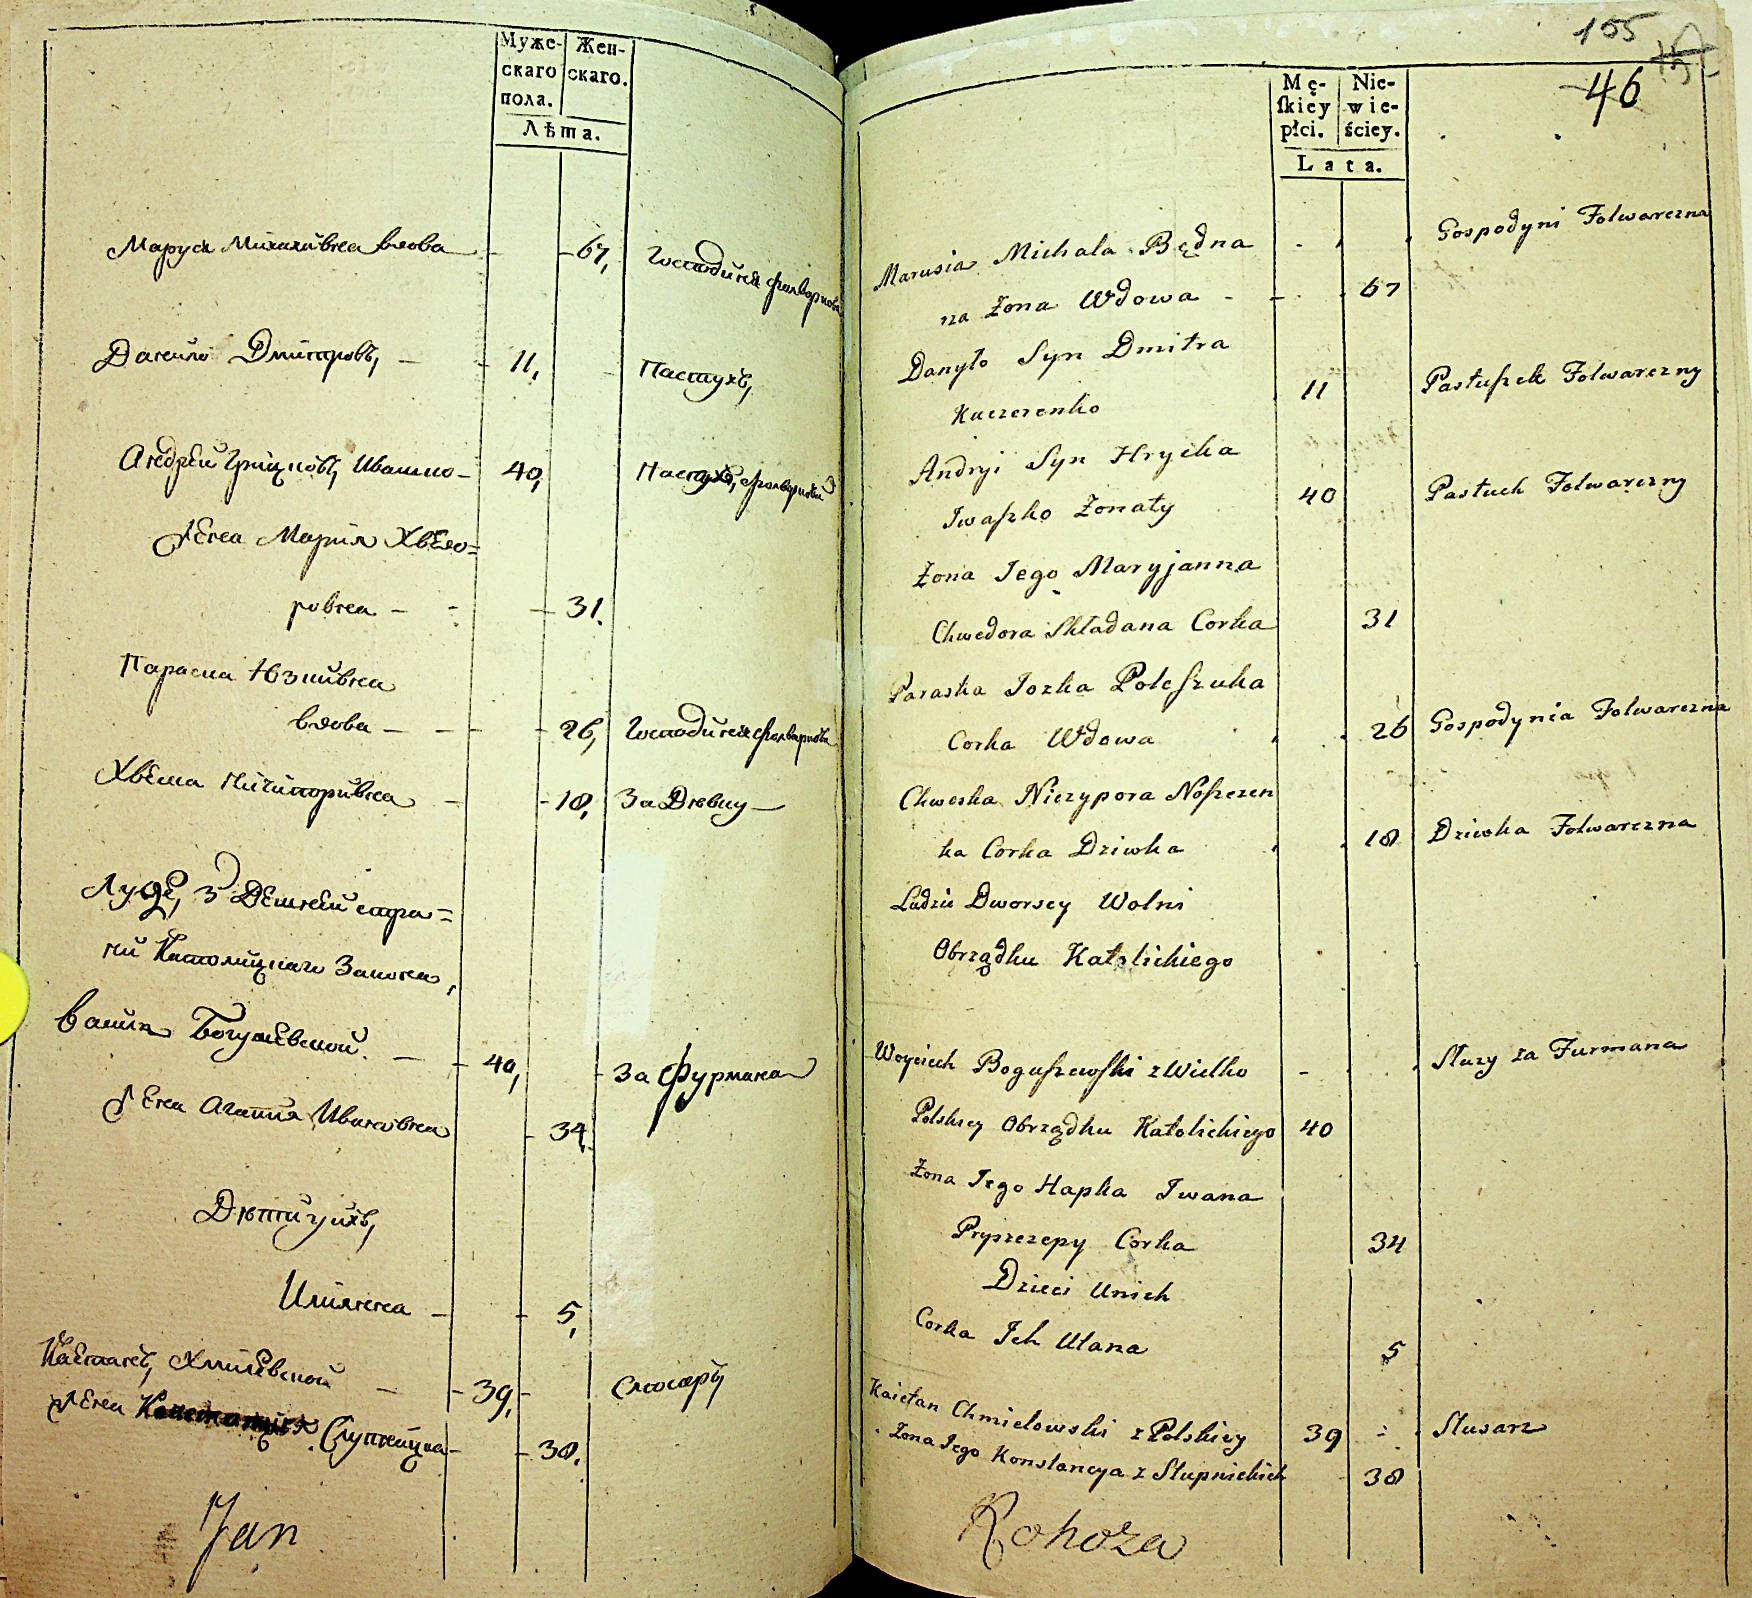 Муже-
скаго
пола.
Жен-
скаго.
Лѣта.
Маруся Михайлівна вдова - - 67, Господиня фолваркова
Данило Дмитровъ, - - 11, Пастухъ,
Андрей Грицковъ, Ивашко - 40, Пастухъ, фолварковий
Жена Мария Хведо=
ровна - - - 31.
Параска Юзківна
вдова - - - 26, Господиня фолваркова
Хвеска Ничипорівна - - 18, За Дѣвку -
Луде, з
Католицкаго Закона,
Богушевской. - - 40, - За фурмана
Жена Агапия Иванівна - 34,
Дѣти ихъ,
Улиянна - - 5,
Каетанъ, Хмілевской - - 39, - Слюсаръ
Жена Констанция Слупницка - - 38.
Jan
155
46
Mę-
ſkiey
płci.
Nie-
wie-
ściey.
Lata.
Marusia Michala Będna Gospodyni Folwarczna
na Żona Wdowa - - 67
Danyło Syn Dmitra
Kuczerenko 11 Pastuſzek Folwarczny
Andryi Syn Hrycka
Iwaſzko Żonaty 40 Pastuch Folwarczny
Żona Iego Maryjanna
Chwedora Składana Corka 31
Paraska Iozka Poleſzuka
Corka Wdowa 26 Gospodynia Folwarczna
Chweska Niczypora Noſzczen
ka Corka Dziwka 18 Dziwka Folwarczna
Ludzie Dworscy Wolni
Obrządku Katolickiego
Woyciech Boguſzewſki z Wielko - Słuzy za Furmana
Polskiey Obrządku Katolickiego 40
Żona Iego Hapka Iwana
Pryszczepy Corka 34
Dzieci Unich
Corka Ich Ulana 5
Kaietan Chmielowski z Polskiey 39 Slusarz
Żona Iego Konstancya z Słupnickich 38
Rohoza